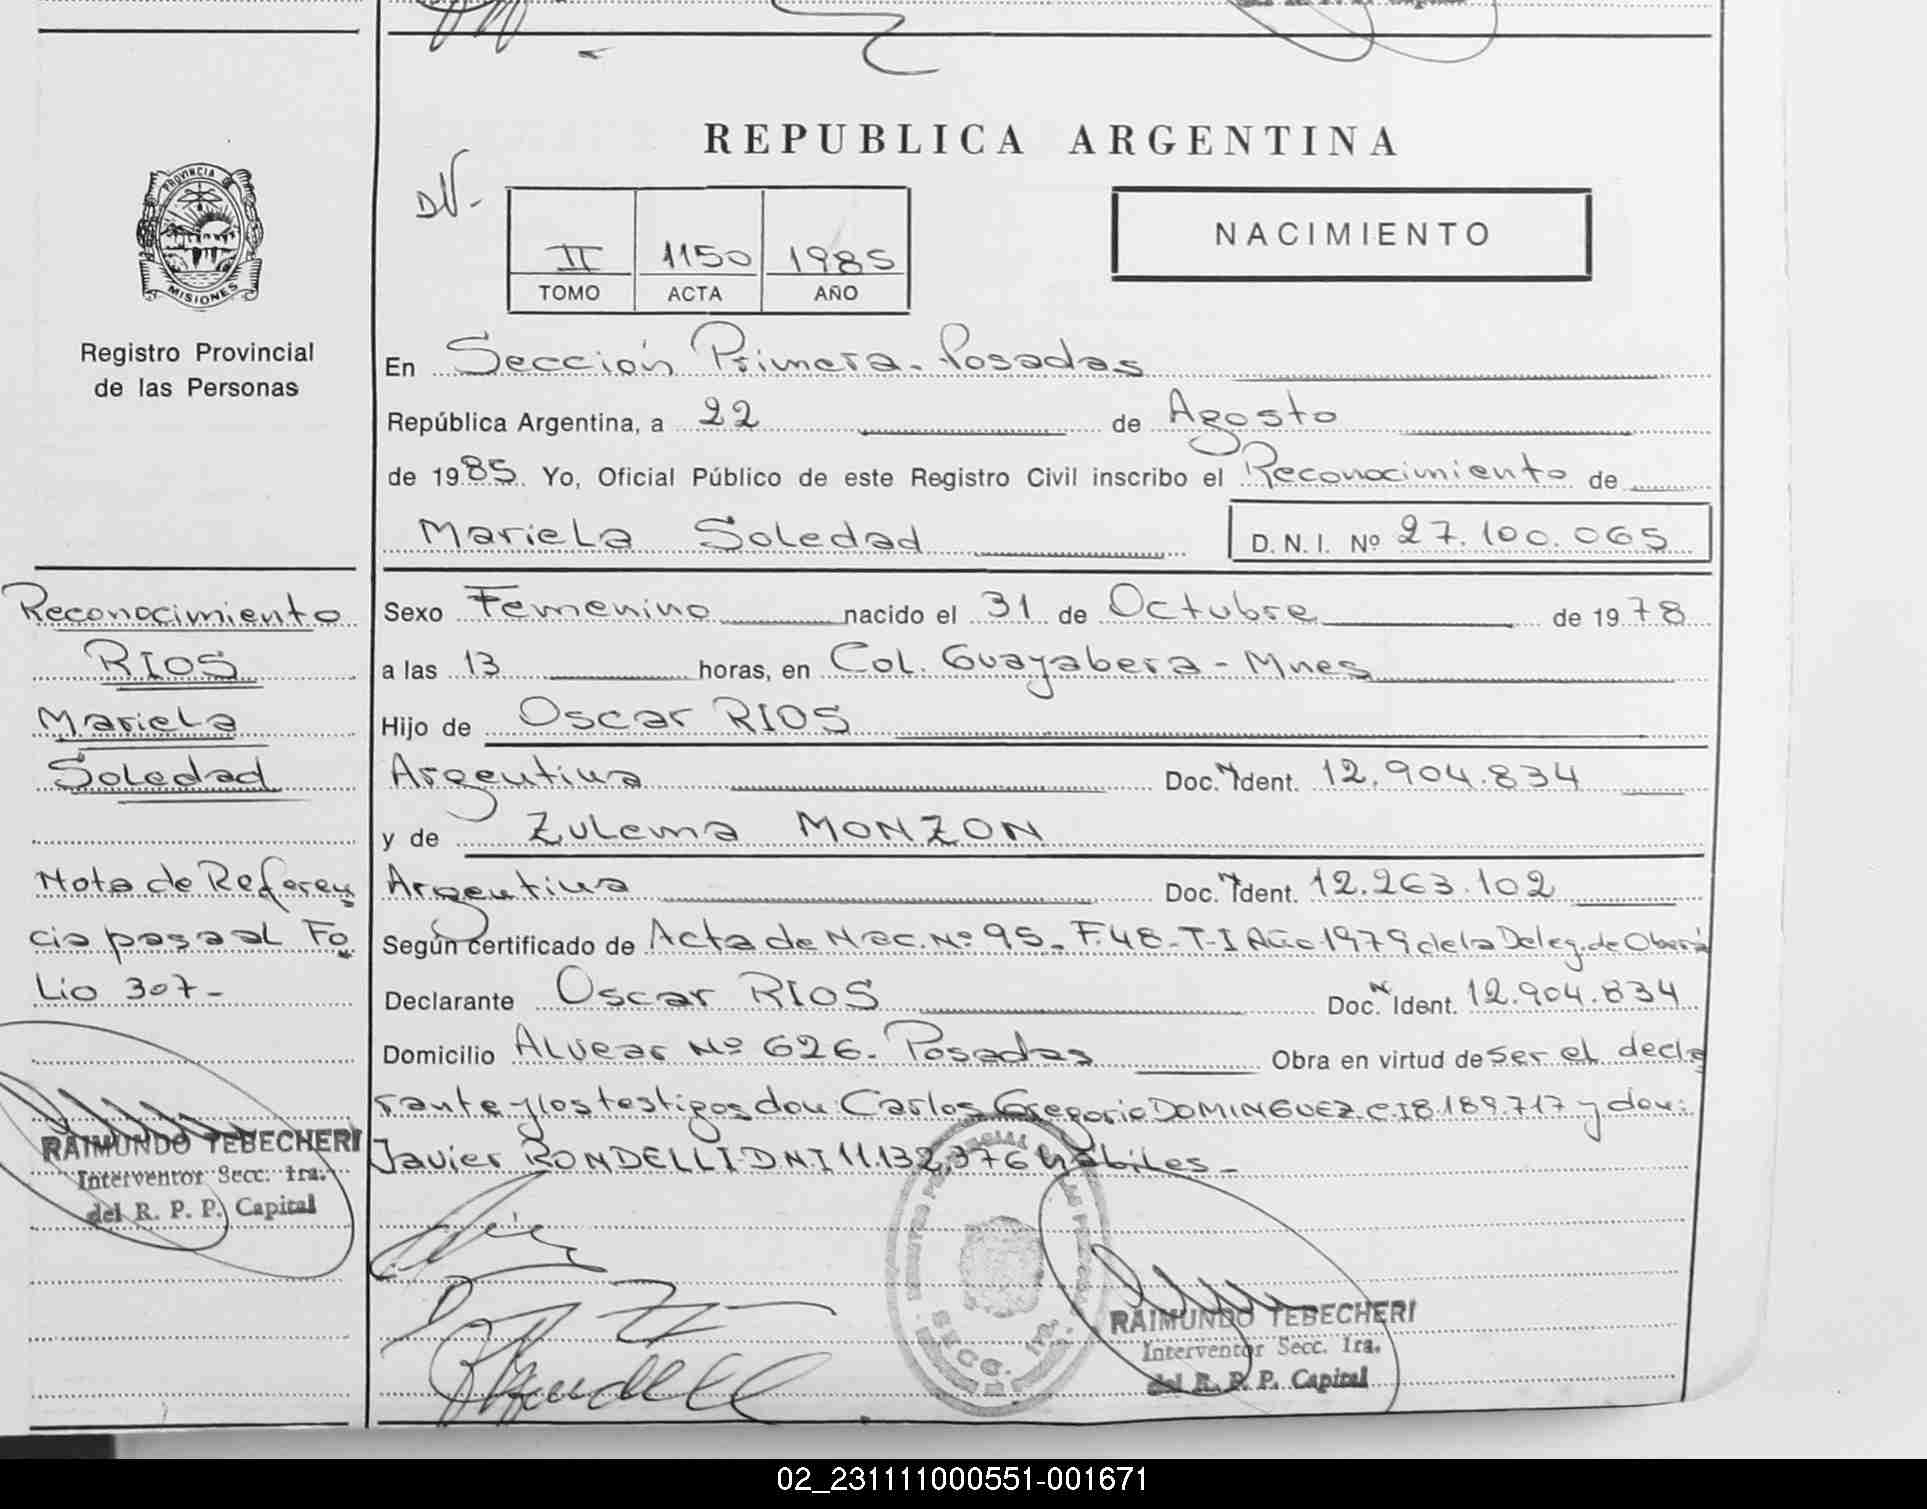 REPUBLICA ARGENTINA
DN-
II 1150 1985
TOMO ACTA AÑO
NACIMIENTO
PROVINCIA DE
MISIONES
Registro Provincial
de las Personas
En Sección Primera. Posadas
República Argentina, a 22 de Agosto
de 1985. Yo, Oficial Público de este Registro Civil inscribo el Reconocimiento de
Mariela Soledad D.N.I. Nº 27.100.065
Reconocimiento
RIOS
Mariela
Soledad
Nota de Referen
cia pasa al Fo
Lio 307-
RAIMUNDO TEBECHERI
Interventor Secc. 1ra.
del R. P. P. Capital
Sexo Femenino nacido el 31 de Octubre de 1978
a las 13 horas, en Col. Guayabera - Mnes
Hijo de Oscar RIOS
Argentina Doc. N Ident. 12.904.834
y de Zulema MONZON
Argentina Doc. N Ident. 12.263.102
Según certificado de Acta de Nac. Nº 95. F. 48-T-I Año 1979 de la Deleg. de Oberá
Declarante Oscar RIOS Doc. N Ident. 12.904.834
Domicilio Alvear Nº 626. Posadas Obra en virtud de ser el decla
rante y los testigos don: Carlos Gregorio DOMINGUEZ C I 8.189.717 y don:
Javier RONDELLI D N I 11.132.376 hábiles-
SECC. 1ra.
RAIMUNDO TEBECHERI
Interventor Secc. 1ra.
del R. P. P. Capital
02_231111000551-001671